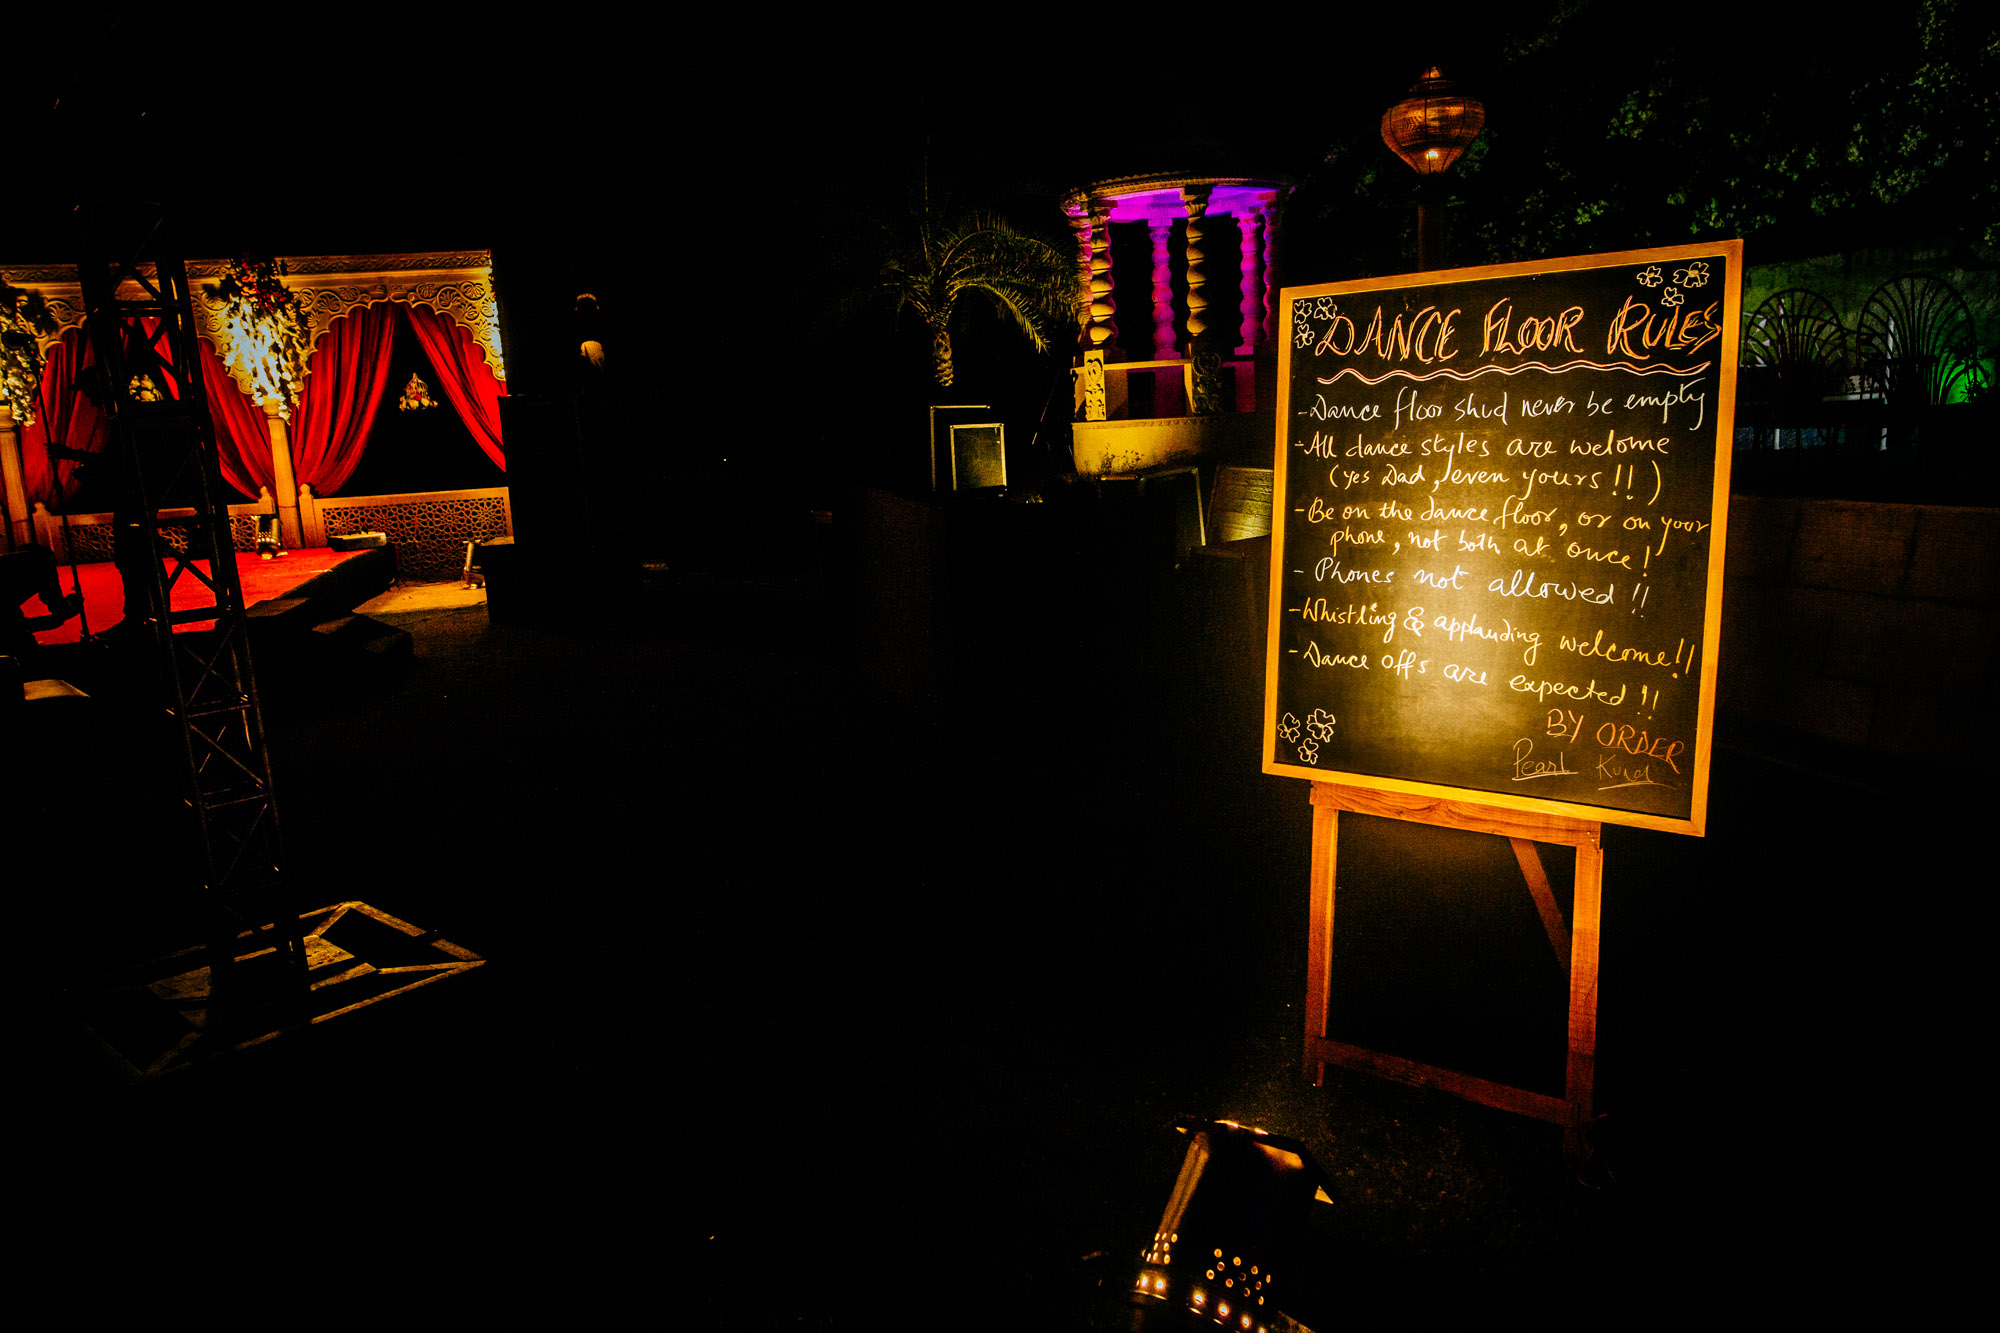 DANCE FLOOR RULES
- Dance floor shud never be empty
- All dance styles are welome
(yes Dad, even yours!!)
- Be on the dance floor, or on your
phone, not both at once!
- Phones not allowed!!
- Whistling & applauding welcome!!
- Dance offs are expected!!
BY ORDER
Pearl